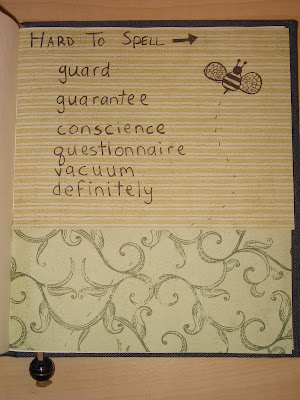 HARD TO SPELL →
guard
guarantee
conscience
questionnaire
vacuum
definitely